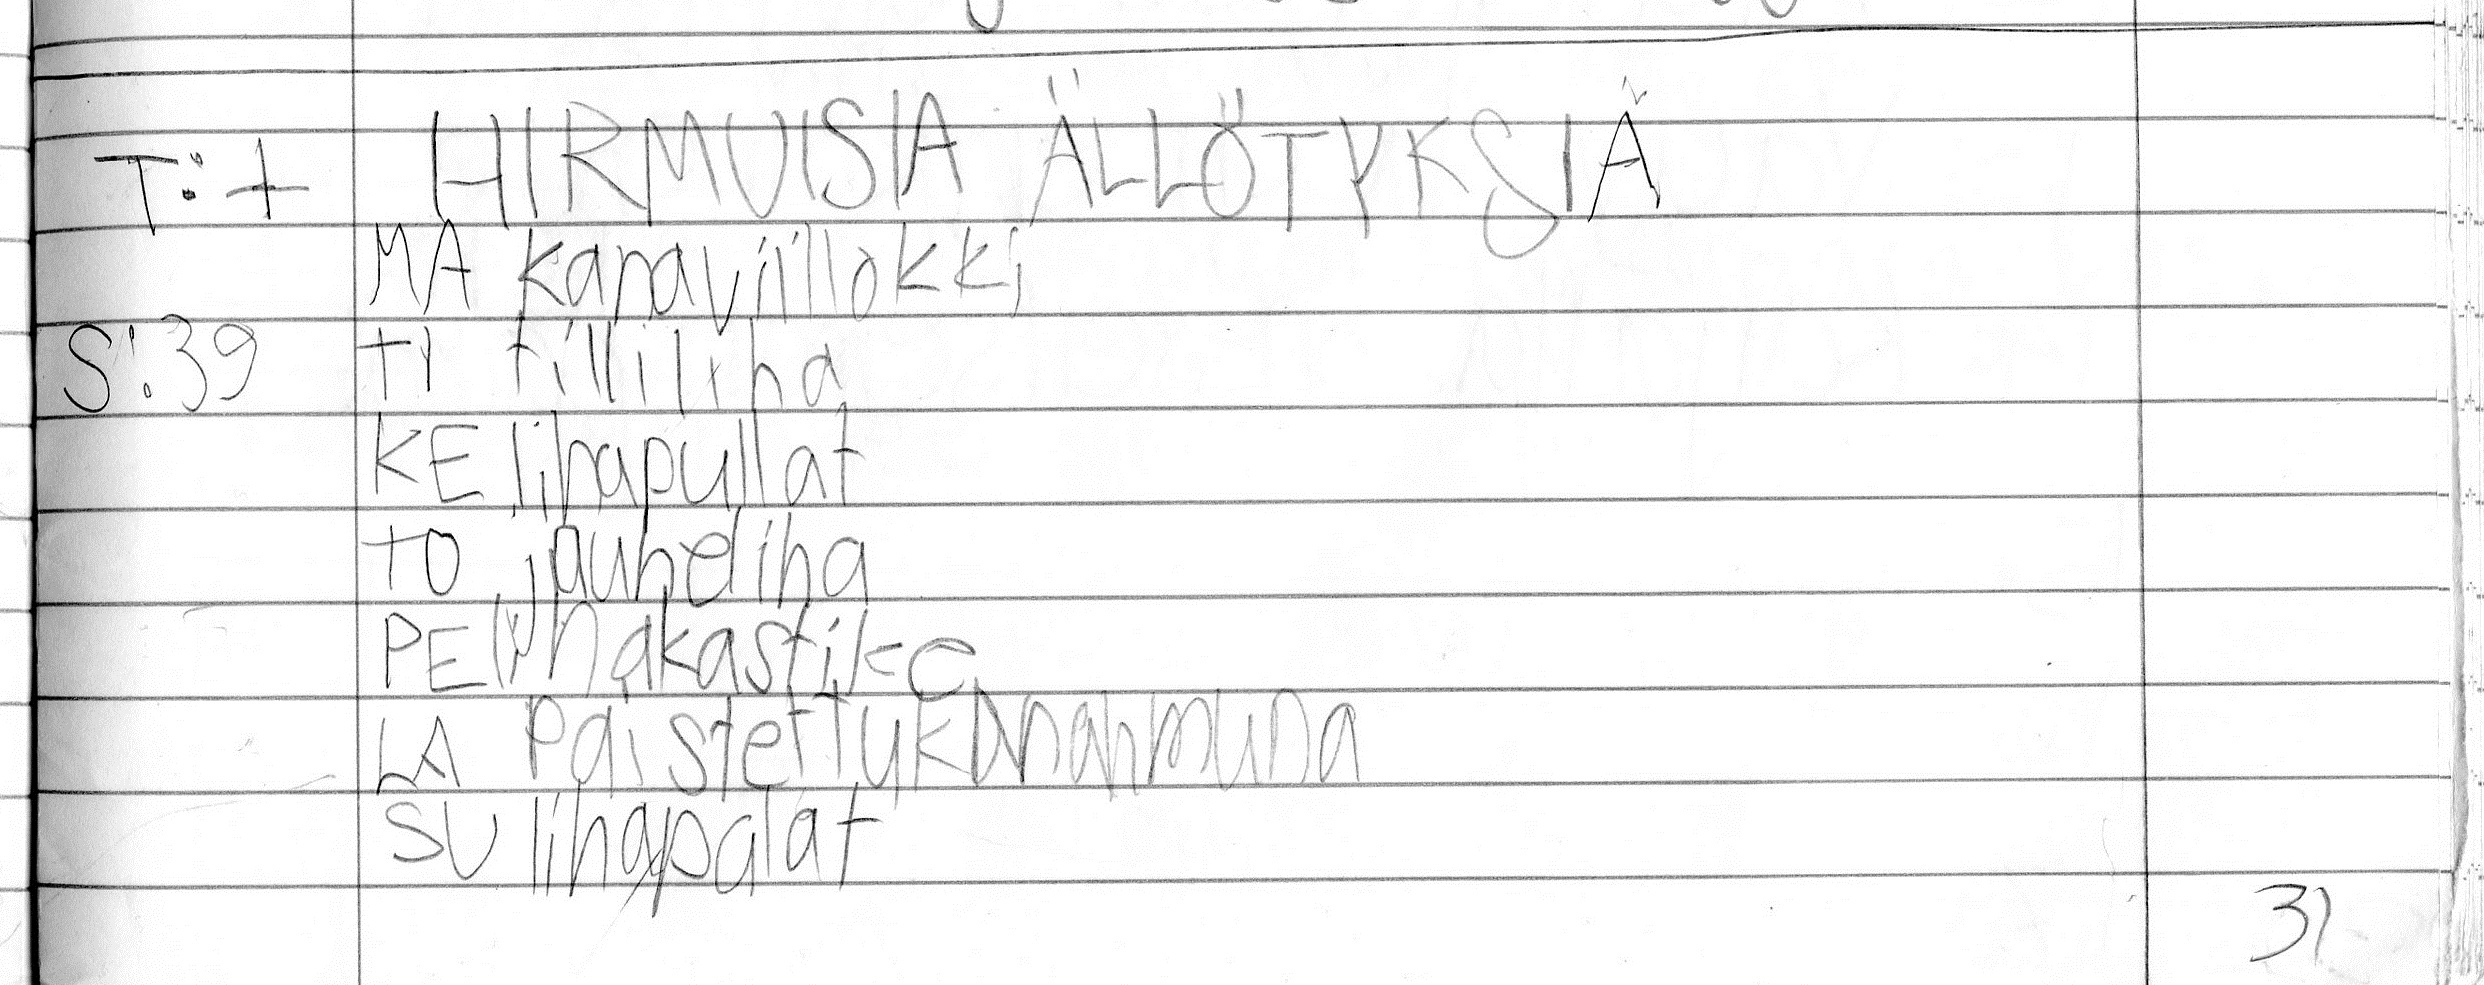 T: + HIRMUISIA ÄLLÖTYKSIÄ
MA kanaviillokki
S:39 TI tilliliha
KE lihapullat
TO jauheliha
PE lihakastike
LA Paistettukananmuna
SU lihapalat
31